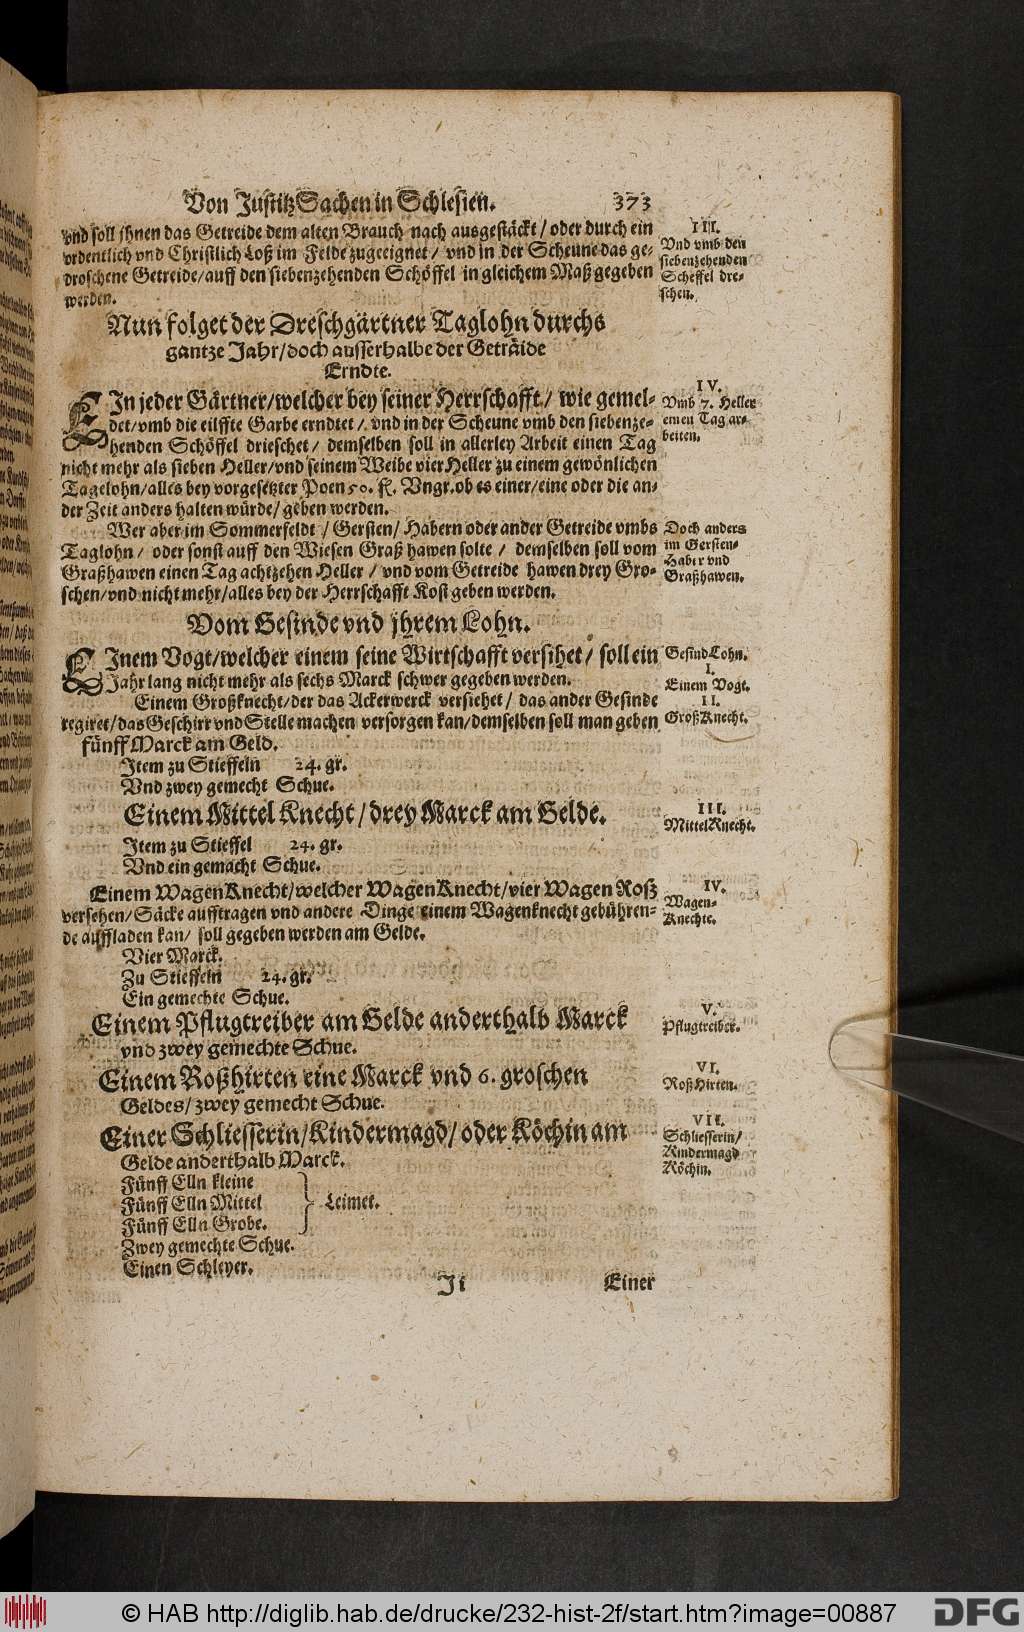 Von Justitz Sachen in Schlesien. 373
vnd soll jhnen das Getreide dem alten Brauch nach ausgestäckt / oder durch ein
ordentlich vnd Christlich Loß im Felde zugeeignet / vnd in der Scheune das ge-
droschene Getreide / auff den siebenzehenden Schöffel in gleichem Maß gegeben
werden.
III.
Vnd vmb den
siebenzehenden
Scheffel dre-
schen.
Nun folget der Dreschgärtner Taglohn durchs
gantze Jahr / doch ausserhalbe der Geträide
Erndte.
EIn jeder Gärtner / welcher bey seiner Herrschafft / wie gemel-
det / vmb die eilffte Garbe erndtet / vnd in der Scheune vmb den siebenze-
henden Schöffel drieschet / demselben soll in allerley Arbeit einen Tag
nicht mehr als sieben Heller / vnd seinem Weibe vier Heller zu einem gewönlichen
Tagelohn / alles bey vorgesetzter Poen 50. fl. Vngr. ob es einer / eine oder die an-
der Zeit anders halten würde / geben werden.
IV.
Vmb 7. Heller
einen Tag ar-
beiten.
Wer aber im Sommerfeldt / Gersten / Habern oder ander Getreide vmbs
Taglohn / oder sonst auff den Wiesen Graß hawen solte / demselben soll vom
Graßhawen einen Tag achtzehen Heller / vnd vom Getreide hawen drey Gro-
schen / vnd nicht mehr / alles bey der Herrschafft Kost geben werden.
Doch anders
im Gersten-
Haber vnd
Graßhawen.
Vom Gesinde vnd jhrem Lohn.
EInem Vogt / welcher einem seine Wirtschafft versihet / soll ein
Jahr lang nicht mehr als sechs Marck schwer gegeben werden.
Gesind Lohn.
I.
Einem Vogt.
Einem Großknecht / der das Ackerwerck versiehet / das ander Gesinde
regiret / das Geschirr vnd Stelle machen versorgen kan / demselben soll man geben
fünff Marck am Geld.
II.
Groß Knecht.
Item zu Stieffeln 24. gr.
Vnd zwey gemecht Schue.
Einem Mittel Knecht / drey Marck am Gelde.
III.
Mittel Knecht.
Item zu Stieffel 24. gr.
Vnd ein gemacht Schue.
Einem Wagen Knecht / welcher Wagen Knecht / vier Wagen Roß
versehen / Säcke aufftragen vnd andere Dinge einem Wagenknecht gebühren-
de auffladen kan / soll gegeben werden am Gelde.
IV.
Wagen-
Knechte.
Vier Marck.
Zu Stieffeln 24. gr.
Ein gemechte Schue.
Einem Pflugtreiber am Gelde anderthalb Marck
vnd zwey gemechte Schue.
V.
Pflugtreiber.
Einem Roßhirten eine Marck vnd 6. groschen
Geldes / zwey gemecht Schue.
VI.
Roß Hirten.
Einer Schliesserin / Kindermagd / oder Köchin am
Gelde anderthalb Marck.
VII.
Schliesserin /
Kindermagd
Köchin.
Fünff Elln kleine
Fünff Elln Mittel } Leimet.
Fünff Elln Grobe.
Zwey gemechte Schue.
Einen Schleyer.
Ii Einer
© HAB http://diglib.hab.de/drucke/232-hist-2f/start.htm?image=00887 DFG